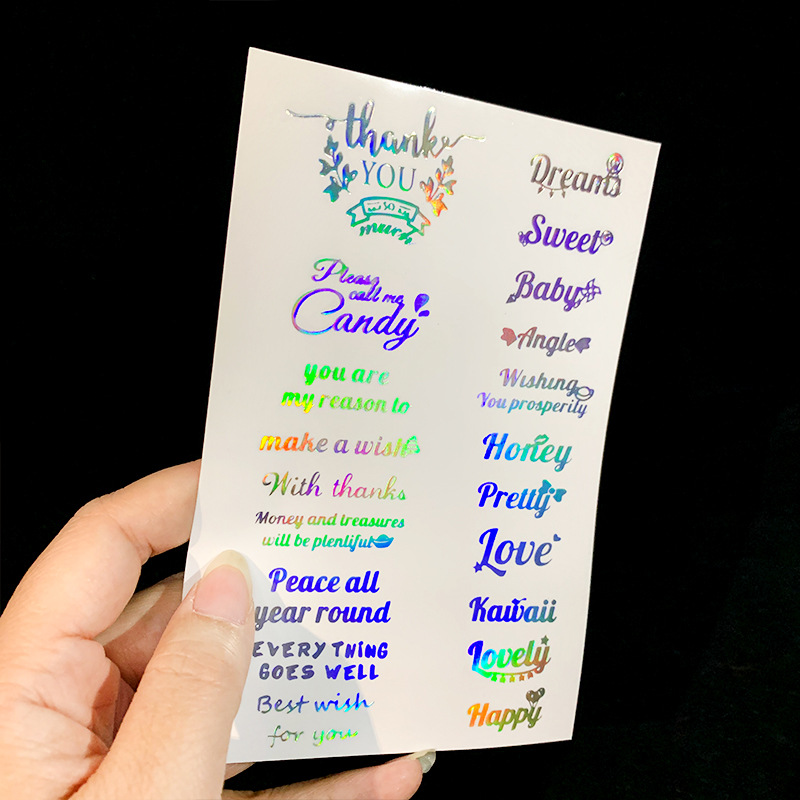 thank
YOU
so
much
Please
call me
Candy
you are
my reason to
make a wish
With thanks
Money and treasures
will be plentiful
Peace all
year round
EVERYTHING
GOES WELL
Best wish
for you
Dreams
Sweet
Baby
Angle
Wishing
You prosperity
Honey
Pretty
Love
Kawaii
Lovely
Happy